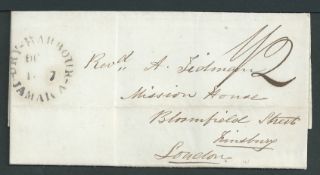 DRY-HARBOUR
JAMAICA
1/2
Revd. A. Tidman
Mission House
Blomfield Street
Finsbury
London